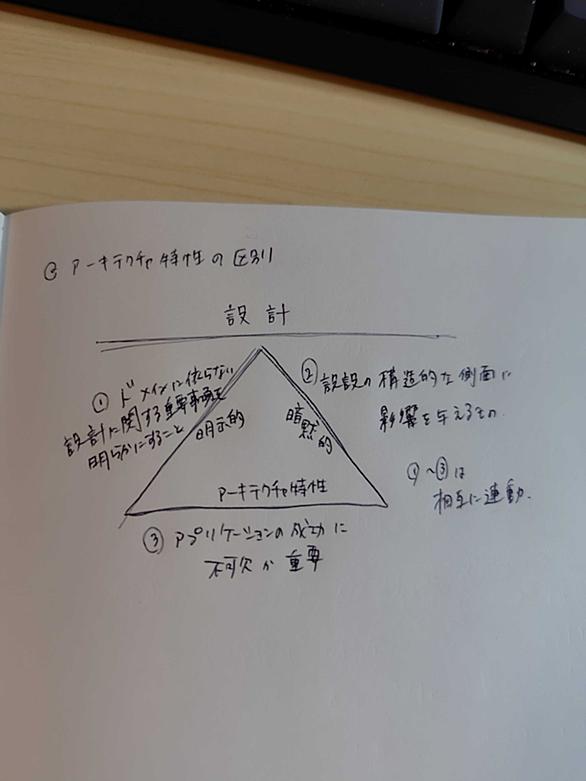 アーキテクチャ特性の区別
設計
① ドメインに依らない
設計に関する重要事項を
明らかにすること
明示的
② 設設の構造的な側面に
影響を与えるもの.
暗黙的
アーキテクチャ特性
①~③は
相互に連動.
③ アプリケーションの成功に
不可欠か重要